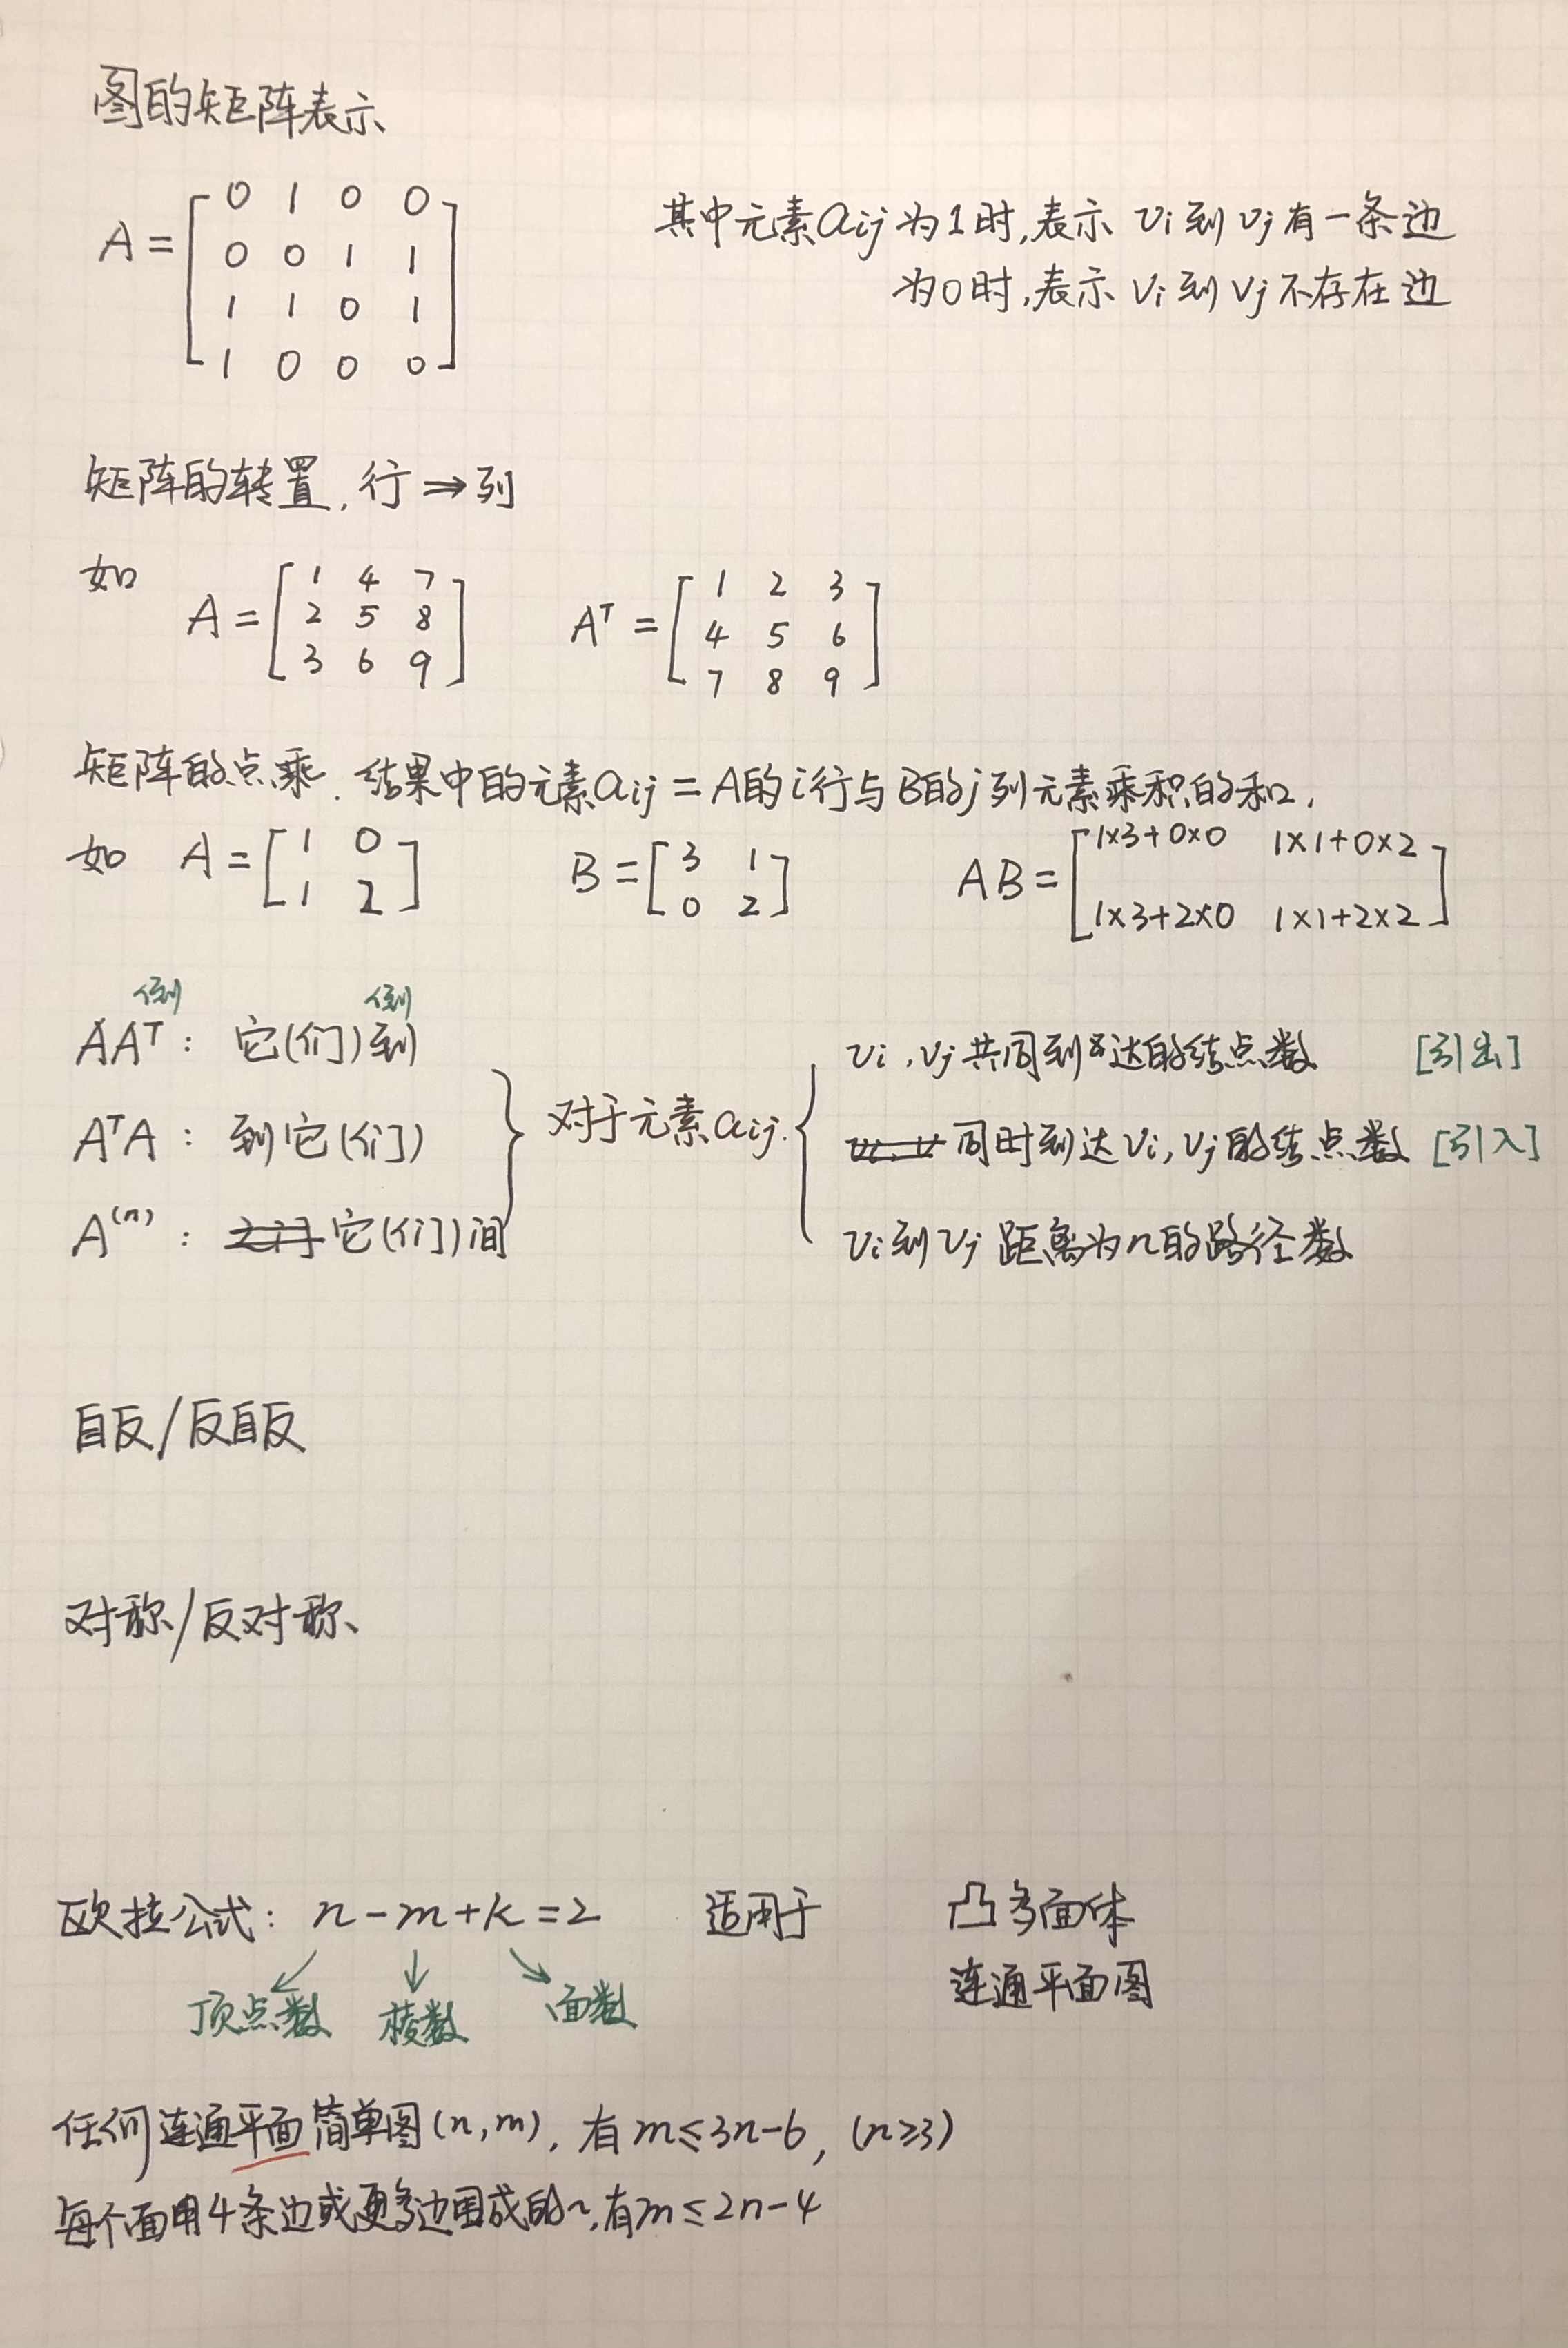 图的矩阵表示
A = [0 1 0 0
0 0 1 1
1 1 0 1
1 0 0 0]
其中元素aij为1时,表示 vi到vj有一条边
为0时,表示 vi到vj不存在边
矩阵的转置,行⇒列
如 A = [1 4 7
2 5 8
3 6 9]
Aᵀ = [1 2 3
4 5 6
7 8 9]
矩阵的点乘.结果中的元素aij = A的i行与B的j列元素乘积的和.
如 A = [1 0
1 2]
B = [3 1
0 2]
AB = [1×3+0×0 1×1+0×2
1×3+2×0 1×1+2×2]
倒 倒
AAᵀ: 它(们)到
AᵀA: 到它(们)
A⁽ⁿ⁾: 它(们)间
} 对于元素aij. {
vi,vj共同到达的结点数 [引出]
同时到达vi,vj的结点数 [引入]
vi到vj 距离为n的路径数
自反/反自反
对称/反对称、
欧拉公式: n-m+k=2 适用于 凸多面体
连通平面图
顶点数 棱数 面数
任何连通平面简单图(n,m),有m≤3n-6,(n≥3)
每个面用4条边或更多边围成的~,有m≤2n-4